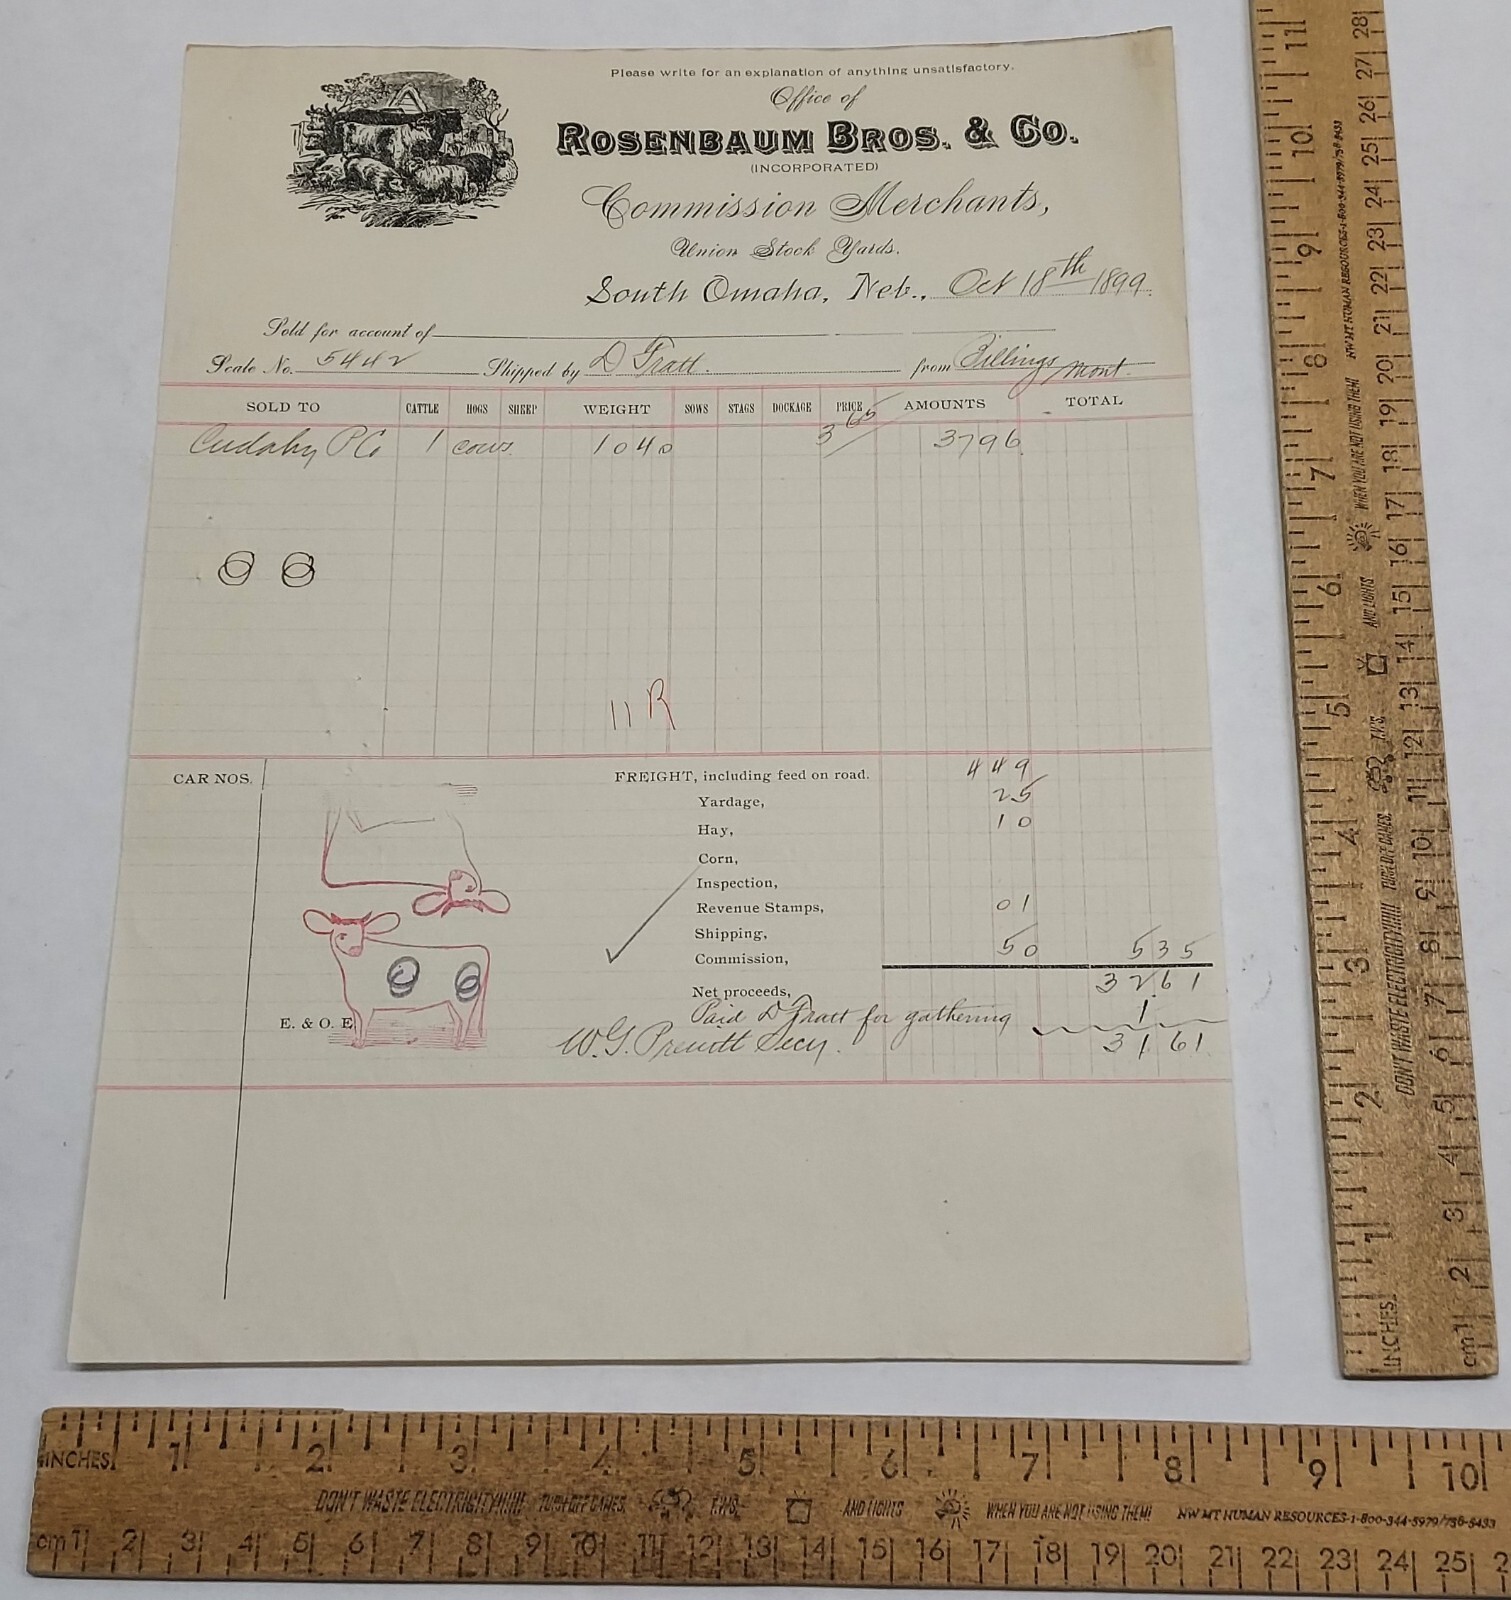 Please write for an explanation of anything unsatisfactory.
Office of
ROSENBAUM BROS. & CO.
(INCORPORATED)
Commission Merchants,
Union Stock Yards.
South Omaha, Neb., Oct 18th 1899
Sold for account of
Scale No. 5442 Shipped by D Fratt. from Billings Mont.
SOLD TO CATTLE HOGS SHEEP WEIGHT SOWS STAGS DOCKAGE PRICE AMOUNTS TOTAL
Cudahy P Co 1 cows. 1040 3 65 3796
11 R
CAR NOS. FREIGHT, including feed on road. 449
Yardage, 25
Hay, 10
Corn,
Inspection,
Revenue Stamps, 01
Shipping,
Commission, 50 535
Net proceeds, 3261
Paid D Fratt for gathering 1
E. & O. E. W.G. Preuitt Secy. 3161
INCHES 1 2 3 4 5 6 7 8 9 10 11
DON'T WASTE ELECTRICITY!!!!! TURN OFF GAMES, T.V.S. AND LIGHTS WHEN YOU ARE NOT USING THEM! NW MT HUMAN RESOURCES-1-800-344-5979/758-5433
cm 1 2 3 4 5 6 7 8 9 10 11 12 13 14 15 16 17 18 19 20 21 22 23 24 25 26 27 28
INCHES 1 2 3 4 5 6 7 8 9 10
DON'T WASTE ELECTRICITY!!!!! TURN OFF GAMES, T.V.S. AND LIGHTS WHEN YOU ARE NOT USING THEM! NW MT HUMAN RESOURCES-1-800-344-5979/758-5433
cm 1 2 3 4 5 6 7 8 9 10 11 12 13 14 15 16 17 18 19 20 21 22 23 24 25 2